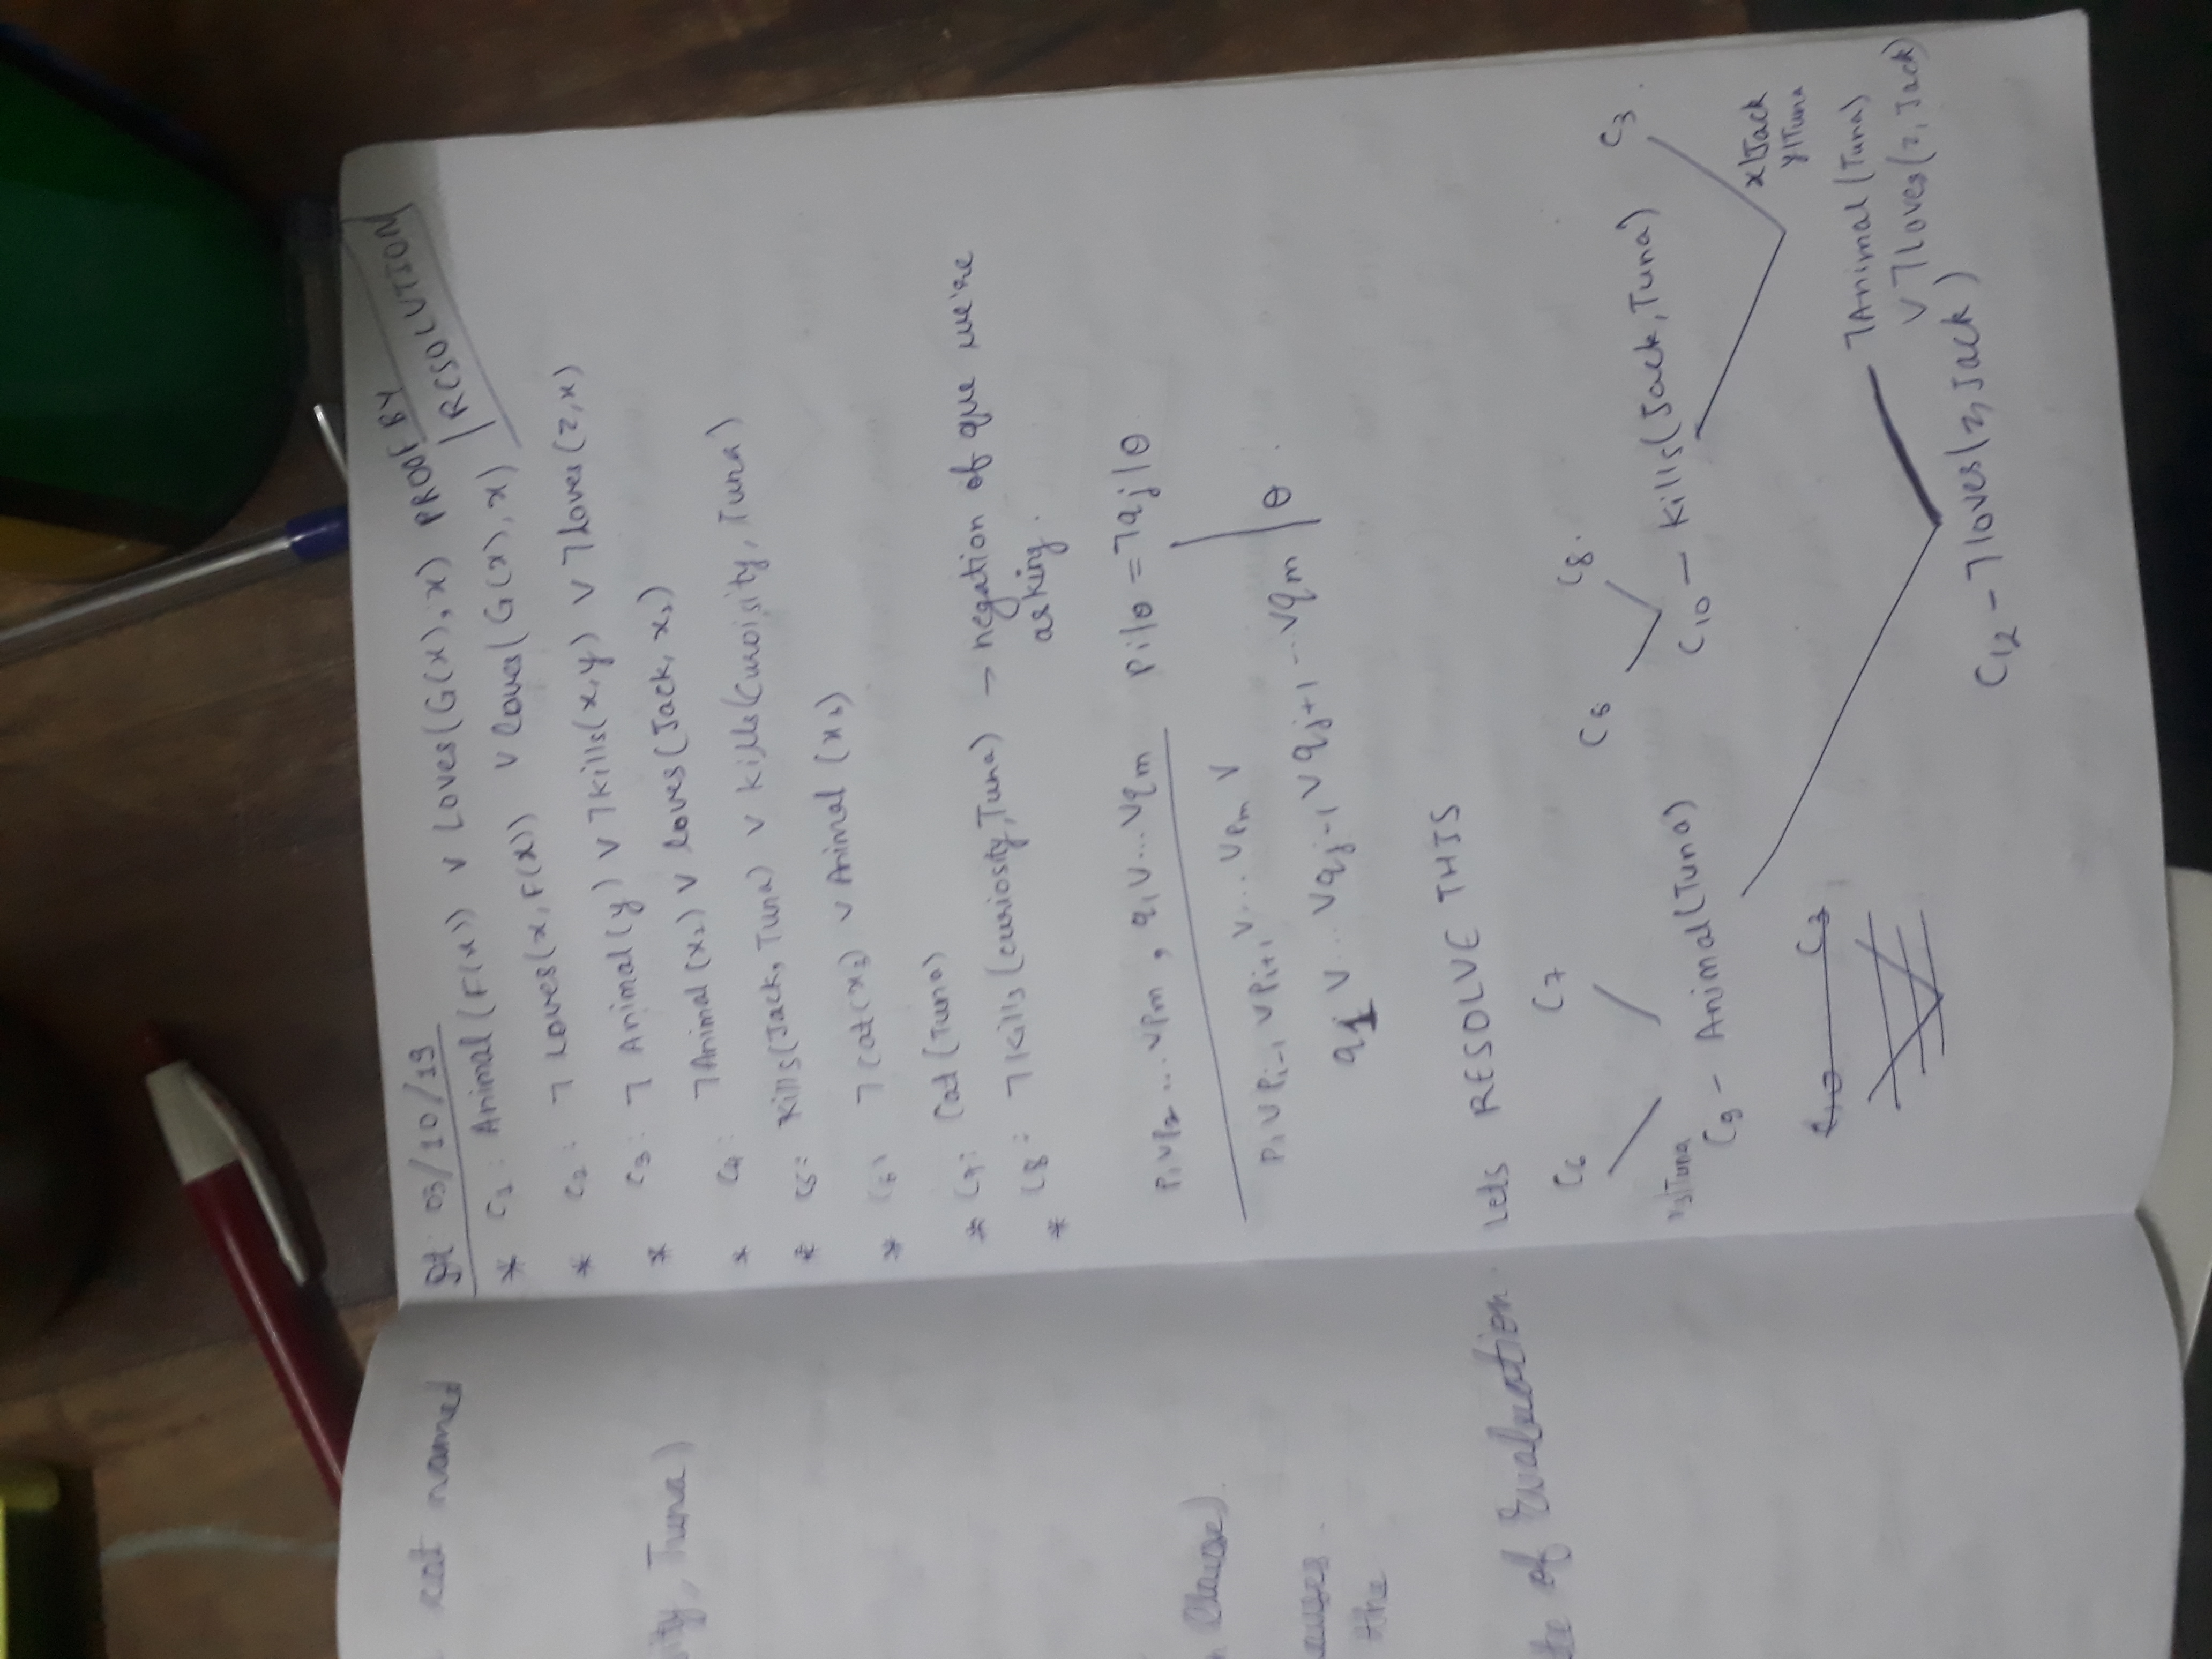 cat named
ity, Tuna)
Clause)
auses.
the
te of Evaluation.
Dt: 03/10/19
PROOF BY
RESOLUTION
* C1: Animal(F(x)) ∨ Loves(G(x), x)
* C2: ¬Loves(x, F(x)) ∨ Loves(G(x), x)
* C3: ¬Animal(y) ∨ ¬Kills(x, y) ∨ ¬Loves(z, x)
* C4: ¬Animal(x2) ∨ Loves(Jack, x2)
* C5: Kills(Jack, Tuna) ∨ Kills(Curiosity, Tuna)
* C6: ¬Cat(x3) ∨ Animal(x3)
* C7: Cat(Tuna)
* C8: ¬Kills(curiosity, Tuna) → negation of que we're
asking.
P1 ∨ P2 ... ∨ Pm , q1 ∨ ... ∨ qm Pi|θ = ¬qj|θ
P1 ∨ Pi-1 ∨ Pi+1 ∨ ... ∨ Pm ∨
q1 ∨ ... ∨ qj-1 ∨ qj+1 ... ∨ qm | θ.
Lets RESOLVE THIS
C6 C7 C5 C8. C3.
x3|Tuna
C9 - Animal(Tuna) C10 - Kills(Jack, Tuna)
x|Jack
y|Tuna
C10 C3
¬Animal(Tuna)
∨ ¬Loves(z, Jack)
C12 - ¬loves(z, Jack)